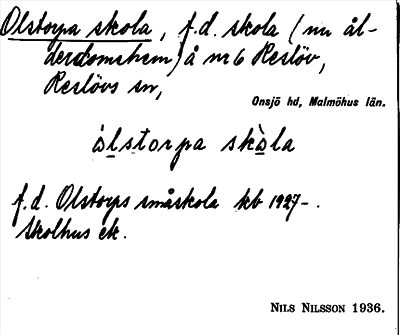 Olstorpa skola, f.d. skola (nu ål-
derdomshem) å nr 6 Reslöv,
Reslövs sn,
Onsjö hd, Malmöhus län.
ȧlstorpa skȧla
f.d. Olstorps småskola kb 1927-.
Skolhus ek.
NILS NILSSON 1936.